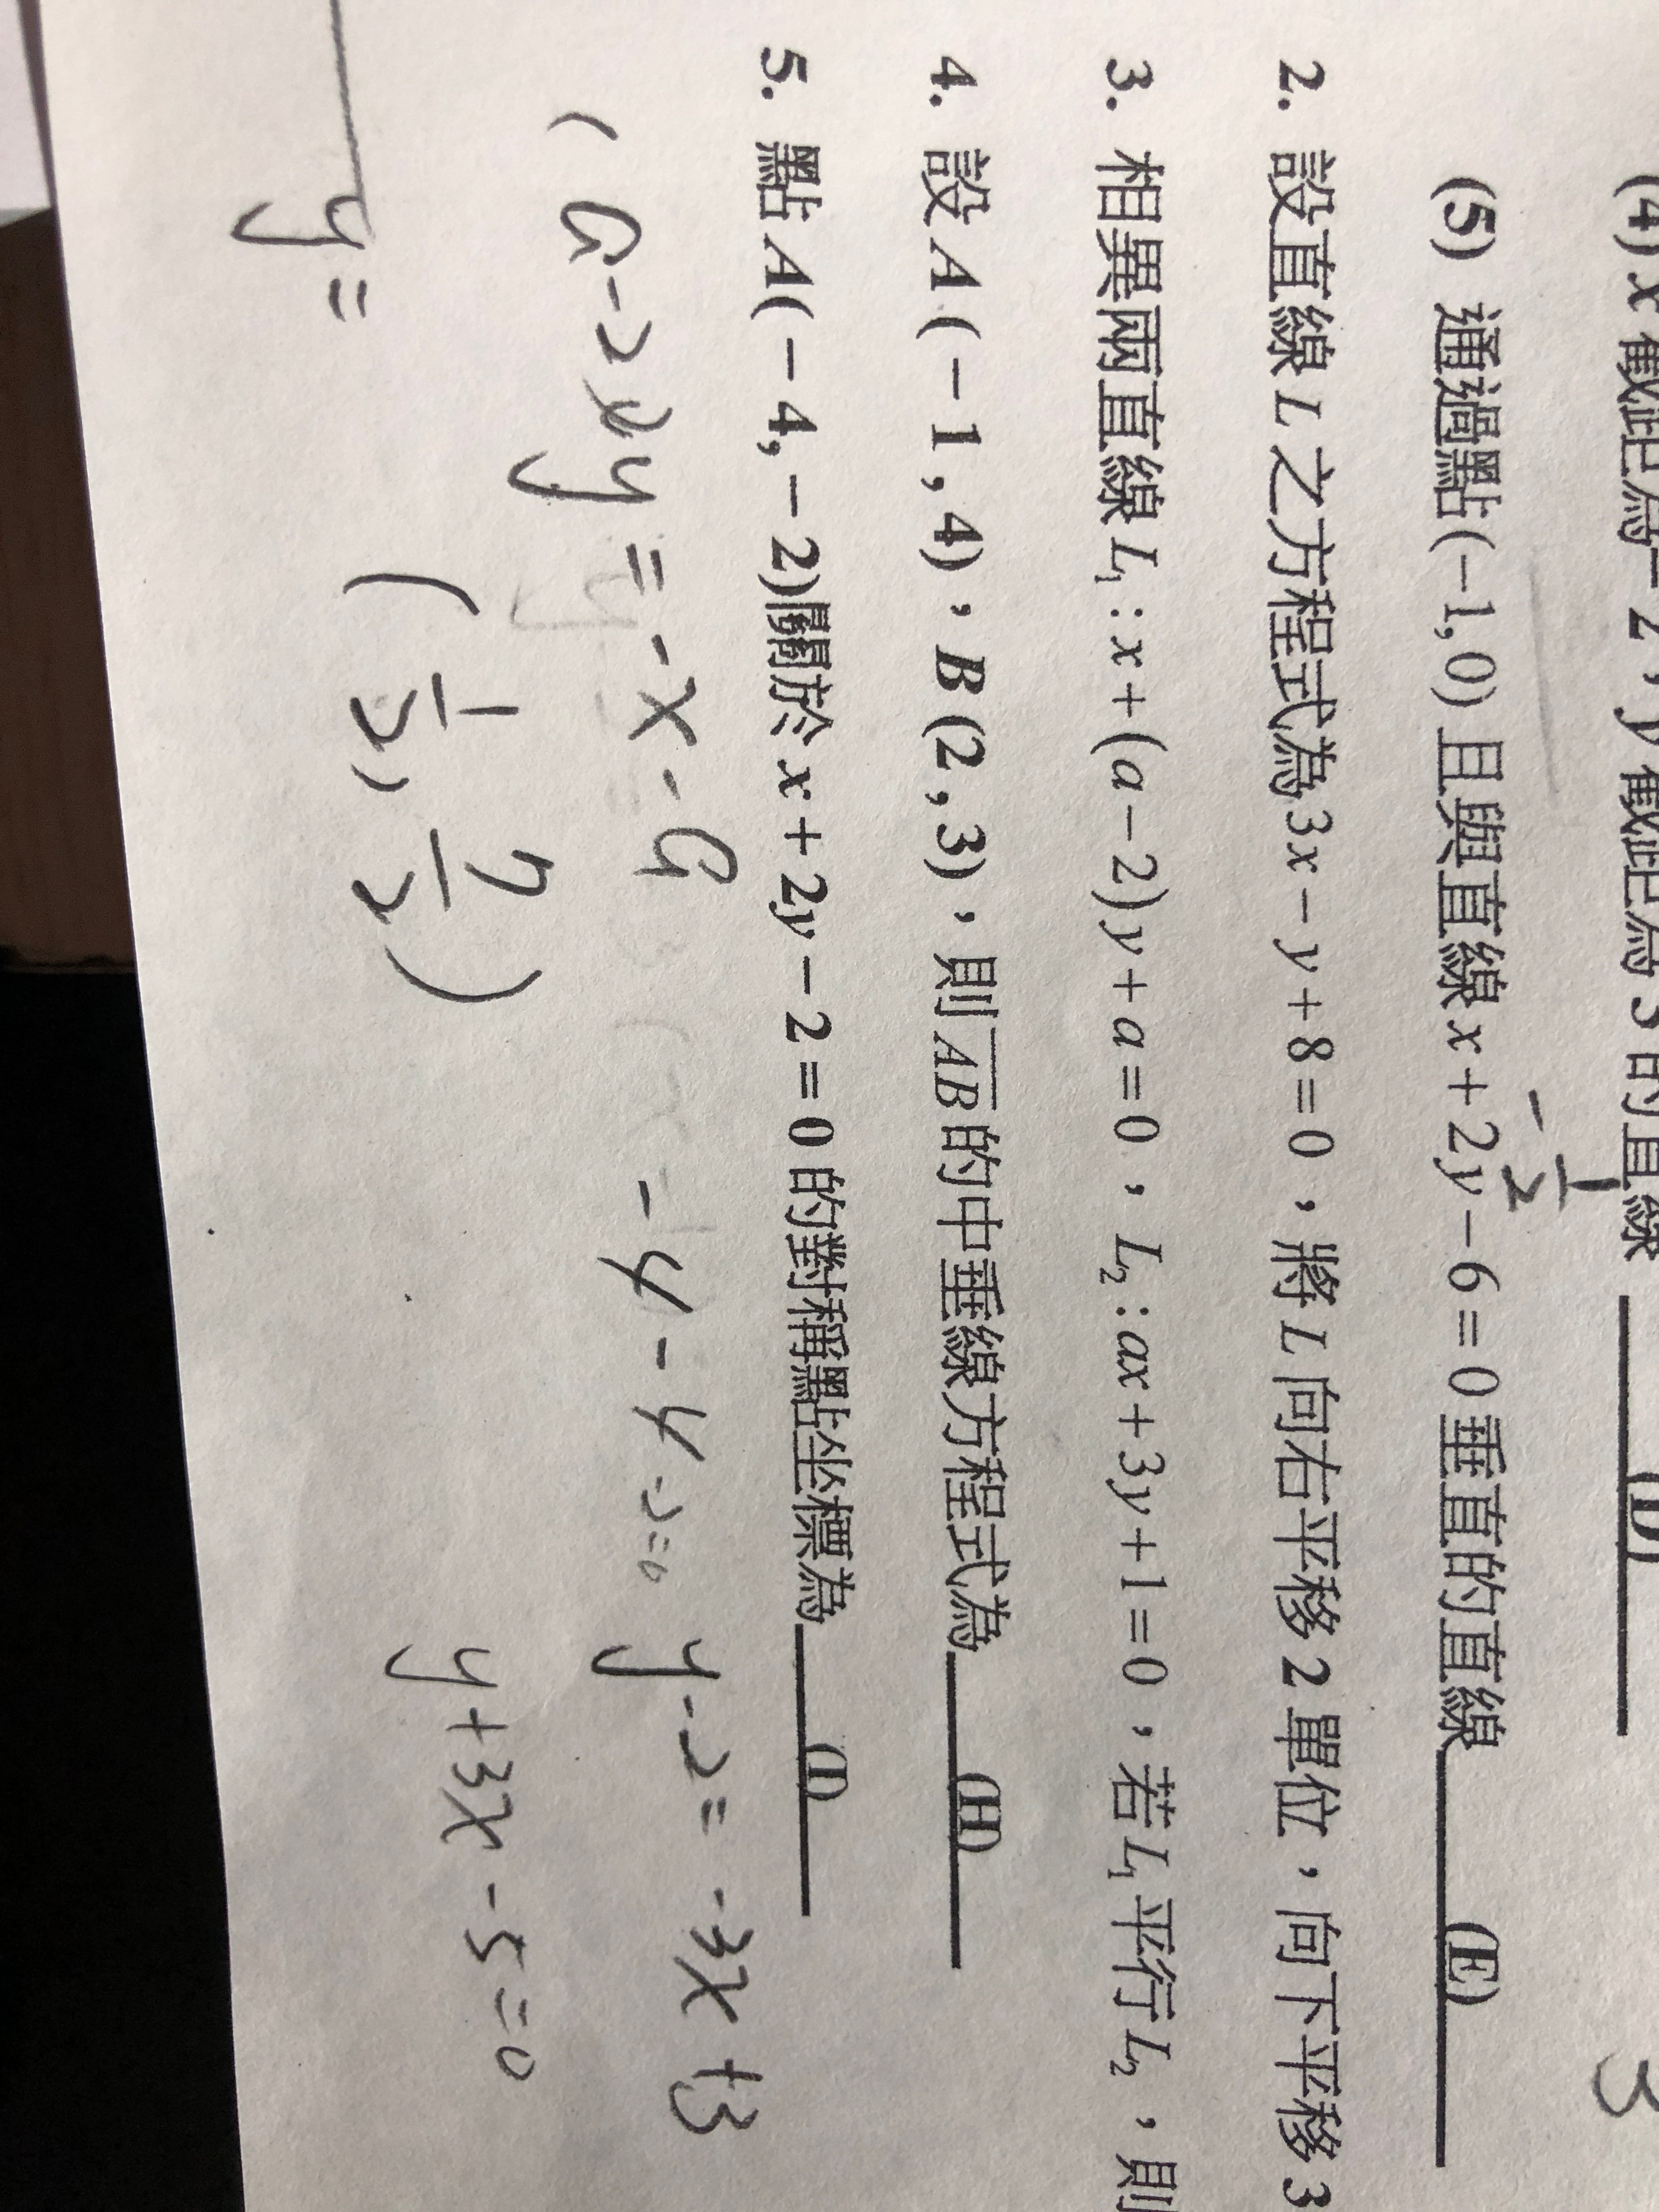 (4) x 截距為 -2，y 截距為 3 的直線 (D)
3
-1/2
(5) 通過點(-1,0) 且與直線 x+2y-6=0 垂直的直線 (E)
2. 設直線 L 之方程式為 3x-y+8=0，將 L 向右平移 2 單位，向下平移 3
3. 相異兩直線 L₁:x+(a-2)y+a=0，L₂:ax+3y+1=0，若 L₁ 平行 L₂，則
4. 設 A(-1,4)，B(2,3)，則 AB 的中垂線方程式為 (H)
5. 點 A(-4,-2)關於 x+2y-2=0 的對稱點坐標為 (I)
y = -x-a
-4-4-2=0
y-2=-3x+3
(1/2, 7/2)
y+3x-5=0
y=